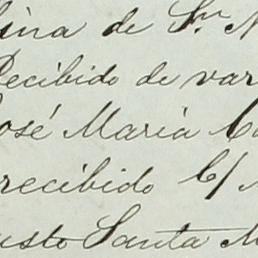 lina de Sn. N
Recibido de var
José Maria Ca
recibido C/
usto Santa M